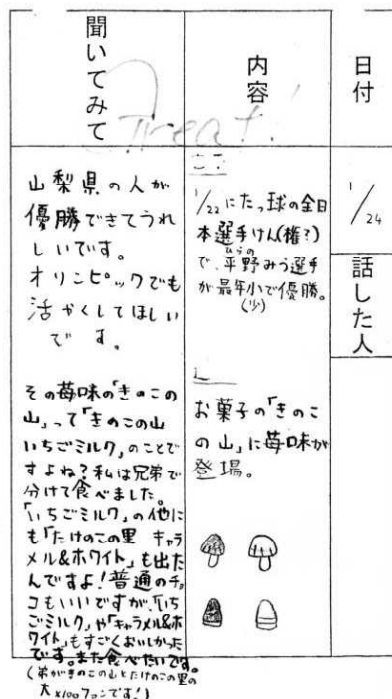 日付
1/24
話した人
内容
1/22にたっ球の全日
本選手けん(権?)
で、平野みう選手
ひらの
が最年小で優勝。
(少)
お菓子の「きのこ
の山」に苺味が
登場。
聞いてみて
Treat!
山梨県の人が
優勝できてうれ
しいです。
オリンピックでも
活やくしてほしい
です。
その苺味の「きのこの
山」って「きのこの山
いちごミルク」のことで
すよね?私は兄弟で
分けて食べました。
「いちごミルク」の他に
も「たけのこの里 キャラ
メル&ホワイト」も出た
んですよ!普通のチョ
コもいいですが、「いち
ごミルク」や「キャラメル&ホ
ワイト」もすごくおいしかった
です。また食べたいです。
(弟がきのこの山とたけのこの里の
大×100ファンです!)